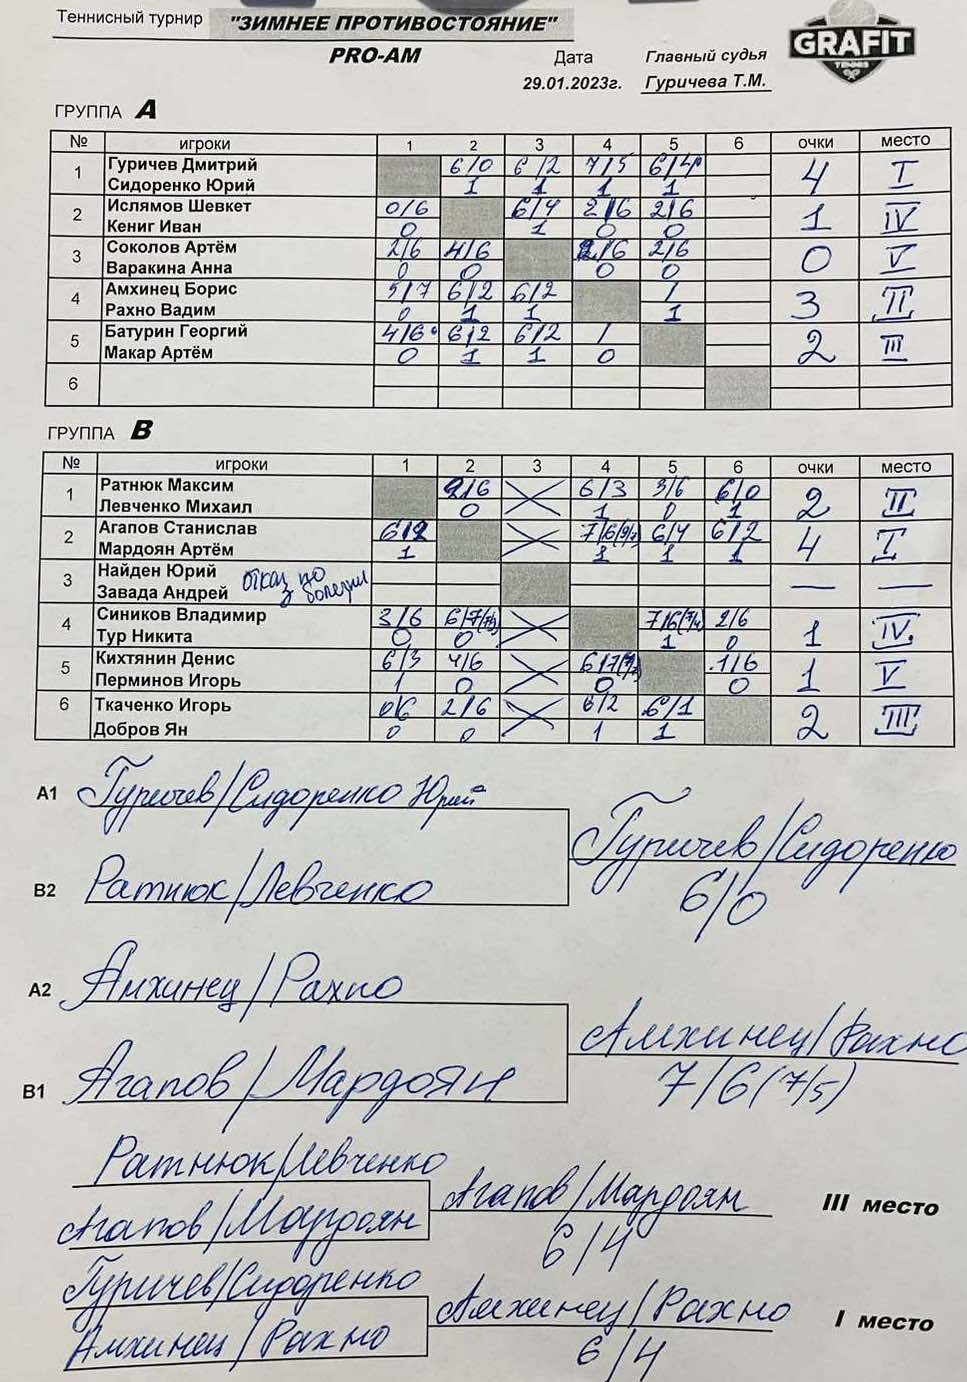 Теннисный турнир "ЗИМНЕЕ ПРОТИВОСТОЯНИЕ"
PRO-AM
Дата
29.01.2023г.
Главный судья
Гуричева Т.М.
GRAFIT
TENNIS
ГРУППА A
№ игроки 1 2 3 4 5 6 очки место
1 Гуричев Дмитрий 6/0 6/2 7/5 6/4 4 I
Сидоренко Юрий 1 1 1 1
2 Ислямов Шевкет 0/6 6/4 2/6 2/6 1 IV
Кениг Иван 0 1 0 0
3 Соколов Артём 2/6 4/6 2/6 2/6 0 V
Варакина Анна 0 0 0 0
4 Амхинец Борис 5/7 6/2 6/2 / 3 II
Рахно Вадим 0 1 1 1
5 Батурин Георгий 4/6 6/2 6/2 / 2 III
Макар Артём 0 1 1 0
6
ГРУППА B
№ игроки 1 2 3 4 5 6 очки место
1 Ратнюк Максим 2/6 6/3 3/6 6/0 2 II
Левченко Михаил 0 1 0 1
2 Агапов Станислав 6/2 7/6(9/7) 6/4 6/2 4 I
Мардоян Артём 1 1 1 1
3 Найден Юрий отказ по — —
Завада Андрей болезни
4 Сиников Владимир 3/6 6/7 7/6(7/4) 2/6 1 IV
Тур Никита 0 0 1 0
5 Кихтянин Денис 6/3 4/6 6/7 1/6 1 V
Перминов Игорь 1 0 0 0
6 Ткаченко Игорь 0/6 2/6 6/2 6/1 2 III
Добров Ян 0 0 1 1
A1 Гуричев/Сидоренко Юрий
Гуричев/Сидоренко
B2 Ратнюк/Левченко
6/0
A2 Амхинец/Рахно
Амхинец/Рахно
B1 Агапов/Мардоян
7/6(7/5)
Ратнюк/Левченко
Агапов/Мардоян III место
Агапов/Мардоян
6/4
Гуричев/Сидоренко
Амхинец/Рахно I место
Амхинец/Рахно
6/4